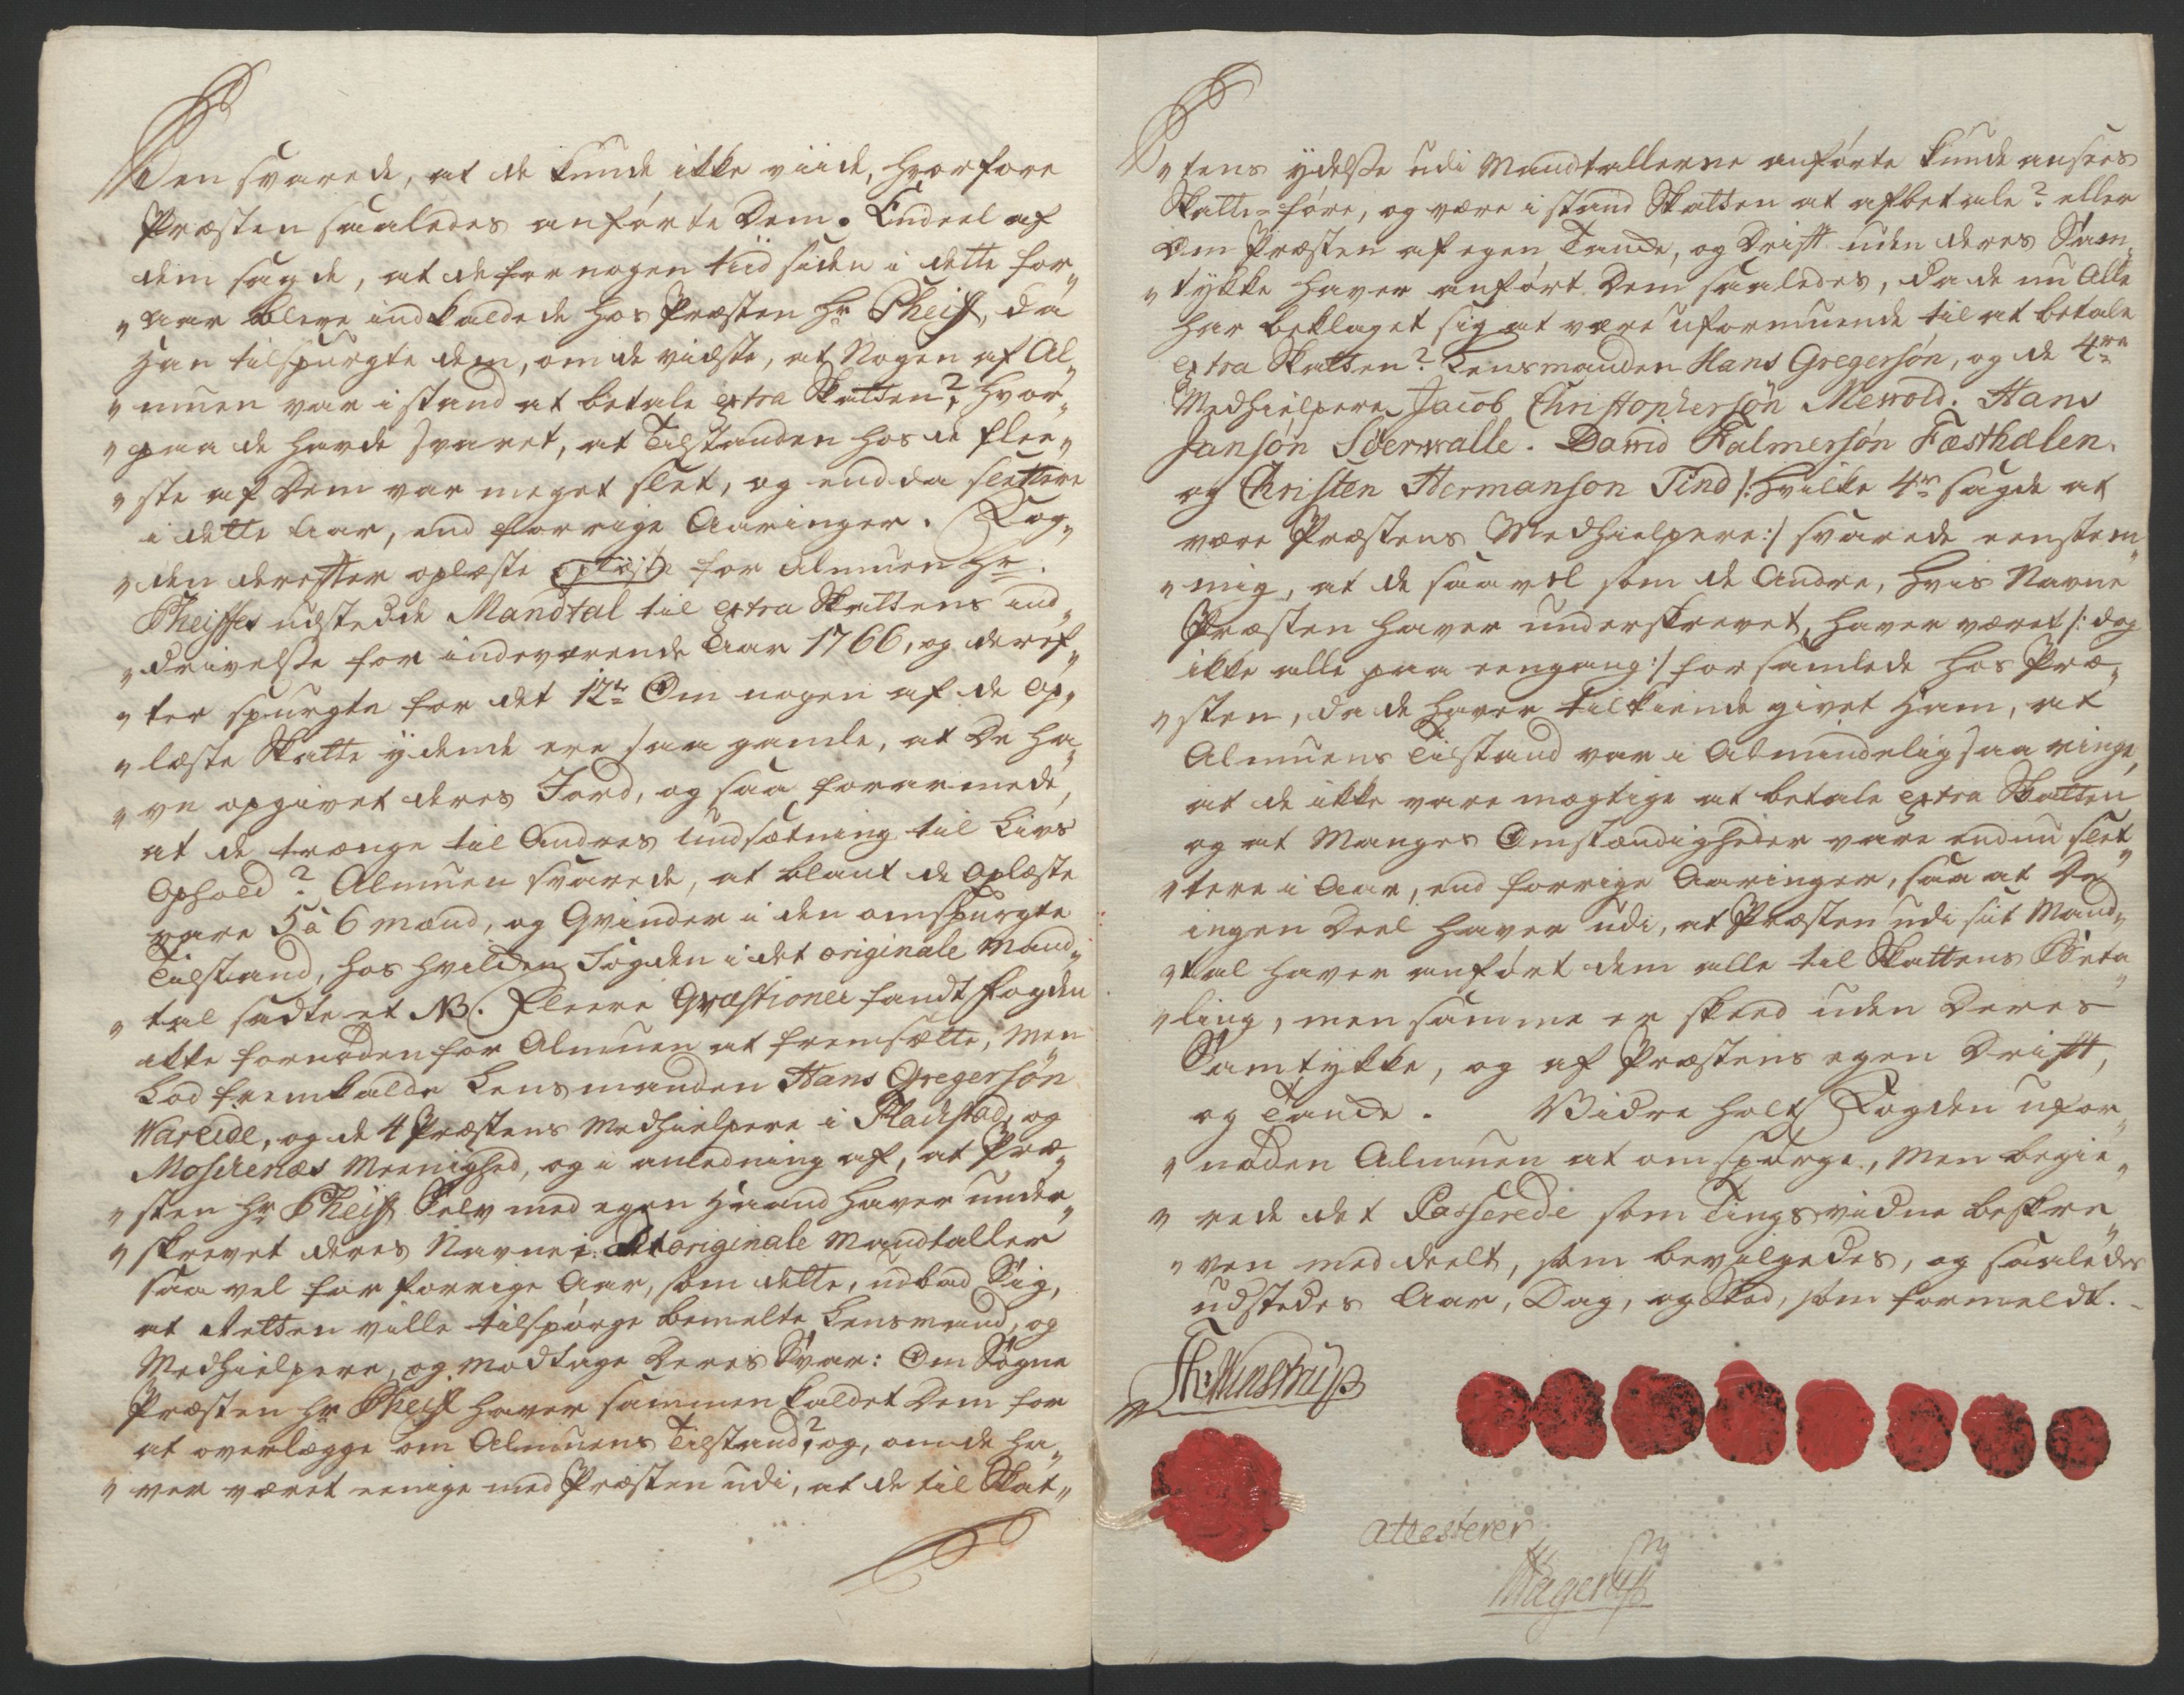 den svarede, at de kunde ikke viide, hvorfore
Præsten saaledes anførte Dem. Endeel af
dem sagde, at de for nogen tiid siden i dette for„
„aar bleve indkaldede hos Præsten Hr Theist, da
han tilspurgte dem, om de vidste, at Nogen af Al„
„muen var i stand at betale extra Skatten?, hvor„
„paa de havde svaret, at Tilstanden hos de flee„
„ste af Dem var meget slet, og endda slettere
i dette Aar, end forrige Aaringer. Fog„
„den derefter oplæste for Almuen Hr.
Theistes udstedde Mandtal til extra Skattens ind„
„drivelse for indeværende Aar 1766, og deref„
„ter spurgte for det 12te Om nogen af de op„
„læste Skatte ydende ere saa gamle, at De ha„
„ve opgivet deres Jord, og saa forarmede,
at de trænge til Andres Undsætning til Livs
Ophold? Almuen svarede, at blant de Oplæste
vare 5 à 6 mænd, og Qvinder i den omspurgte
Tilstand, hos hvilken Fogden i det originale Mand„
„tal sadte et NB. Fleere Qvæstioner fandt Fogden
ikke fornøden for Almuen at fremsætte, Men
Lod fremkalde Lensmanden Hans Gregersøn
Vareide, og de 4 Præstens Medhielpere i Flachstad, og
Moschenæs Meenighed, og i anledning af, at Præ„
„sten Hr Theist Selv med egen Haand haver under„
„skrevet deres Navne i det originale Mandtaller
saa vel for forrige Aar, som dette, udbad Sig,
at Retten ville tilspørge bemelte Lensmand, og
Medhielpere, og modtage Deres Svar: Om Sogne
Præsten Hr Theist haver sammen kaldet Dem for
at overlægge om Almuens Tilstand?, og, om de ha„
„ver været eenige med Præsten udi, at de til Skat„
„tens ydelse udi Mandtallerne anførte kunde ansees
Skatte-føre, og være i stand Skatten at afbetale? eller
Om Præsten af egen Tanke, og Drift uden deres Sam„
„tykke haver anført Dem saaledes, da de nu Alle
har beklaget sig at være uformuende til at betale
extra Skatten? Lensmanden Hans Gregersøn, og de 4re
Medhielpere Jacob Christophersøn Mewold. Hans
Jansøn Sderwalle. Dawid Falmersøn Fæsthælen.
og Christen Hermanson Tind /: hvilke 4re sagde at
være Præstens Medhielpere :/ svarede eenstem„
„mig, at de saavel som de Andre, hvis Navne
Præsten haver underskrevet, haver været /: dog
ikke alle paa eengang :/ forsamlede hos Præ„
„sten, da de haver tilkiende givet ham, at
Almuens Tilstand var i Almindelig saa ringe,
at de ikke vare mægtige at betale extra Skatten
og at Manges Omstændigheder vare endnu slet„
„tere i Aar, end forrige Aaringer, saa at De
ingen Deel haver udi, at Præsten udi sit Mand„
„tal haver anført dem alle til Skattens Beta„
„ling, men samme er skeed uden Deres
Samtykke, og af Præstens egen Drift,
og Tanke. Vidre holt Fogden ufor„
„nøden Almuen at omspørge, Men begie„
„rede det Passerede som Tingsvidne beskre„
„ven meddeelt, som bevilgedes, og saaledes
udstedes Aar, Dag, og Sted, som formeldt.
attesterer